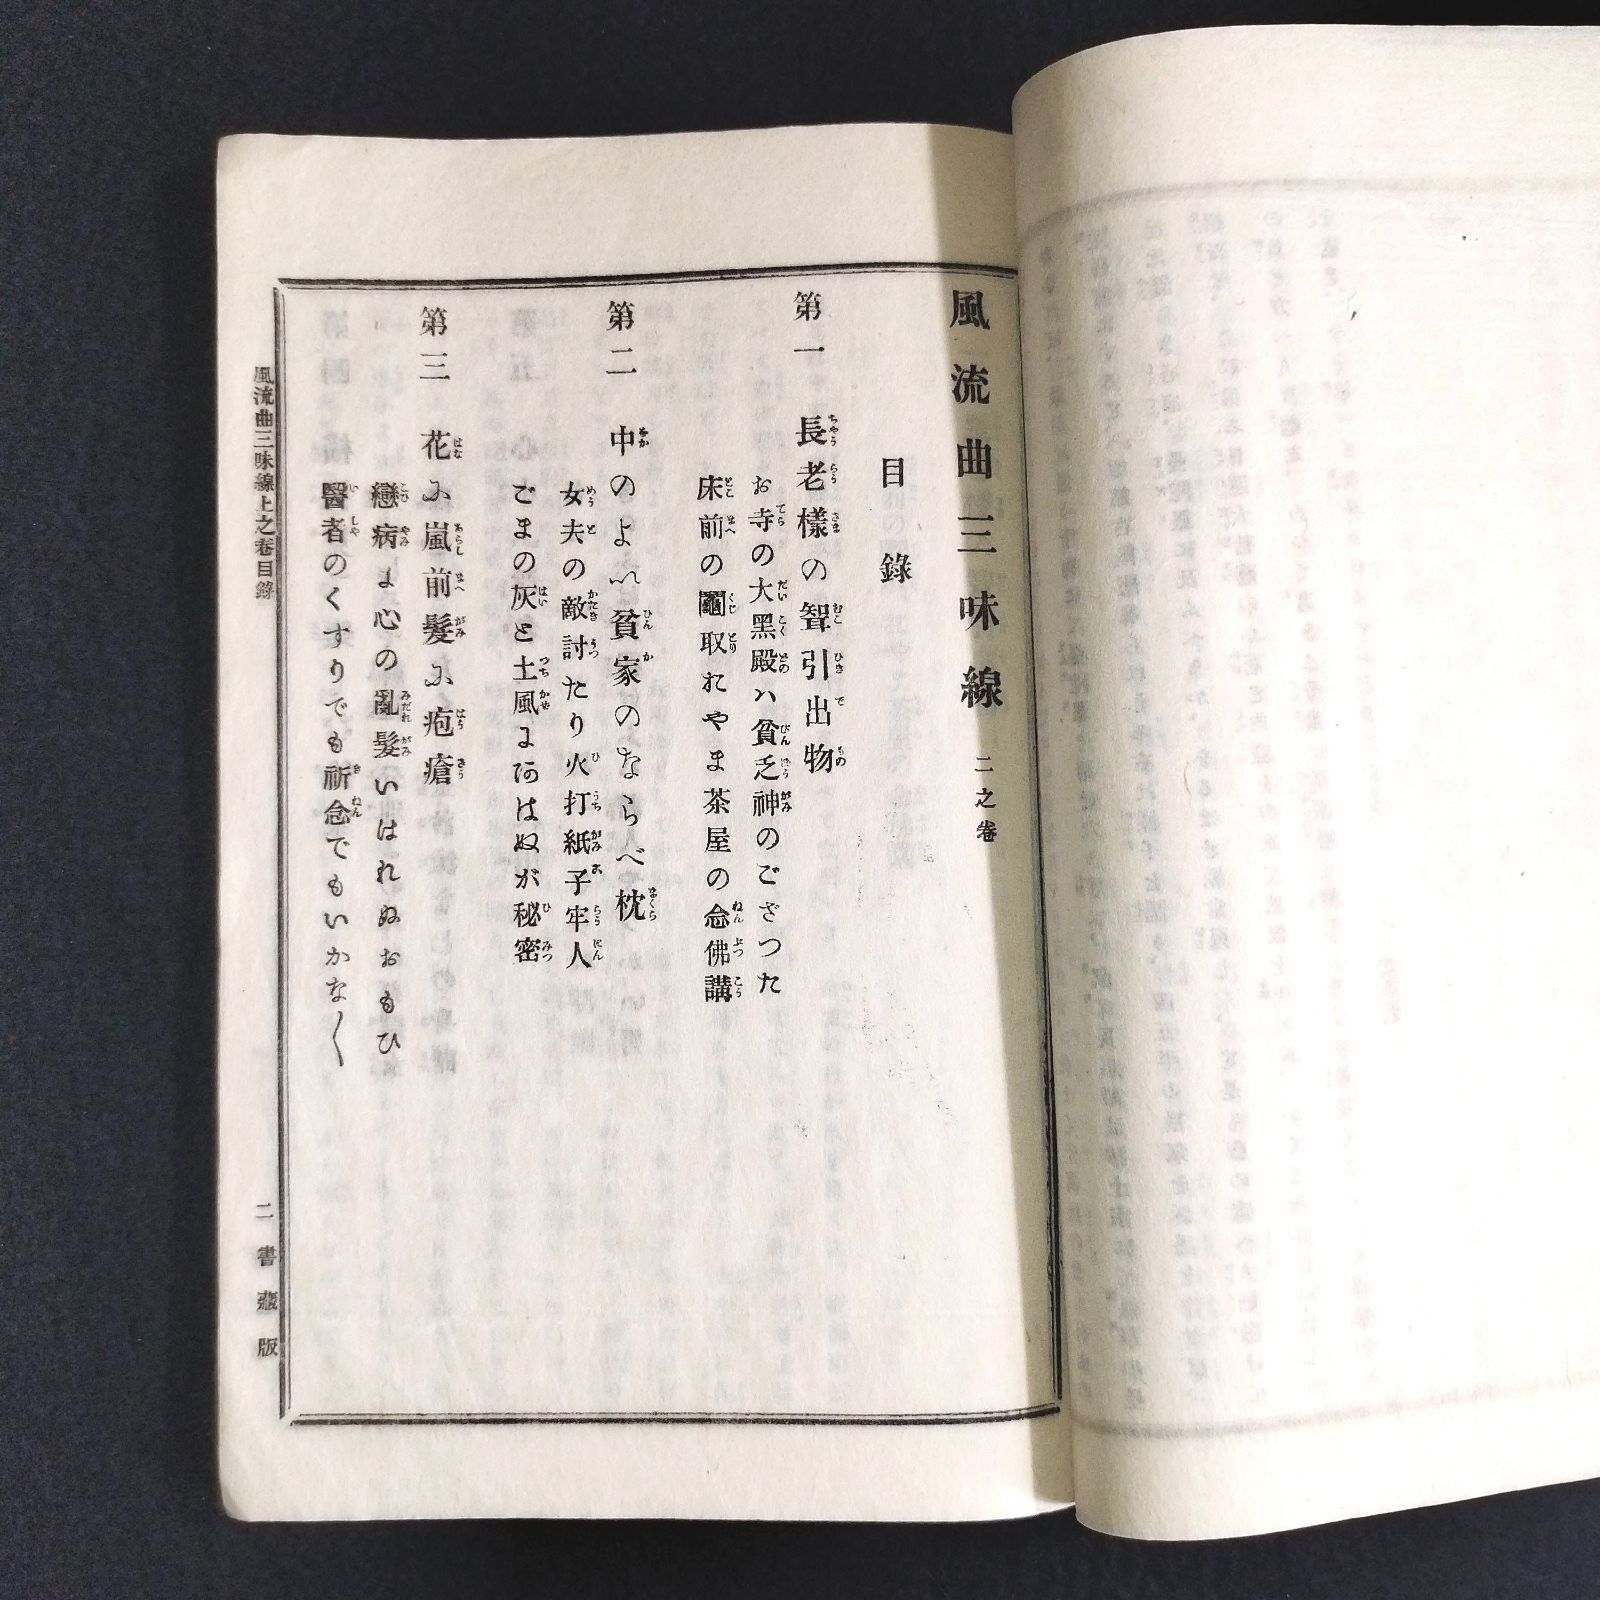 風流曲三味線 二之卷
目錄
第一 長老樣の聟引出物
お寺の大黑殿ハ貧乏神のござつた
床前の鬮取れやま茶屋の念佛講
第二 中のよい貧家のならべ枕
女夫の敵討たり火打紙子牢人
ごまの灰と土風にあはぬが秘密
第三 花に嵐前髮に疱瘡
戀病は心の亂髮いはれぬおもひ
醫者のくすりでも祈念でもいかな〱
風流曲三味線上之卷目錄
二 書藏版